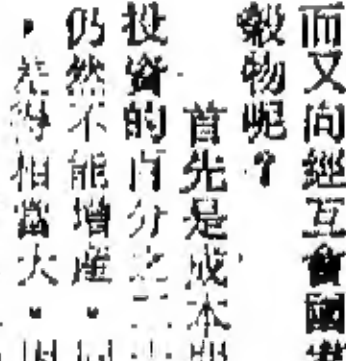 而又向經互會國
穀物呢？
首先是成本
投資的百分之二
仍然不能增產，
，差得相當大，